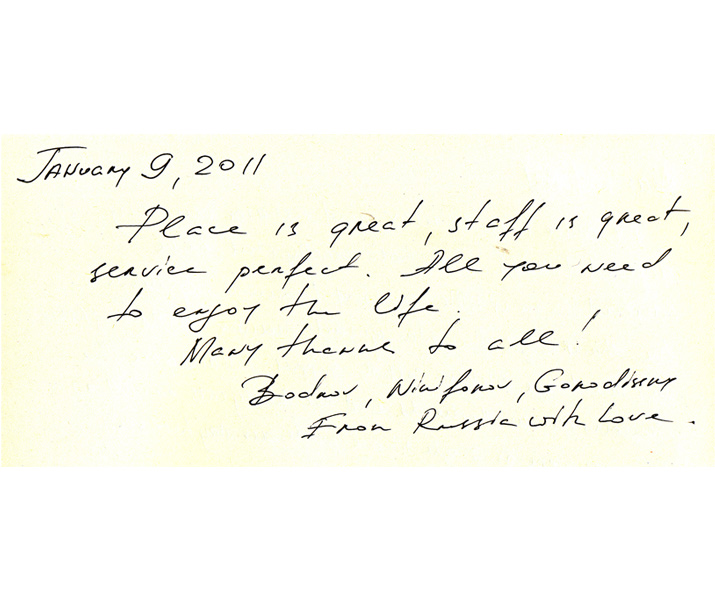 January 9, 2011
Place is great, staff is great,
service perfect. All you need
to enjoy the life.
Many thanks to all!
Bodrov, Nikiforov,
From Russia with Love.